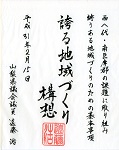 西八代・南巨摩郡の課題に取り組み
誇りある地域づくりのための基本事項
誇る地域づくり
構想
平成31年2月15日
山梨県議会議員 遠藤 浩